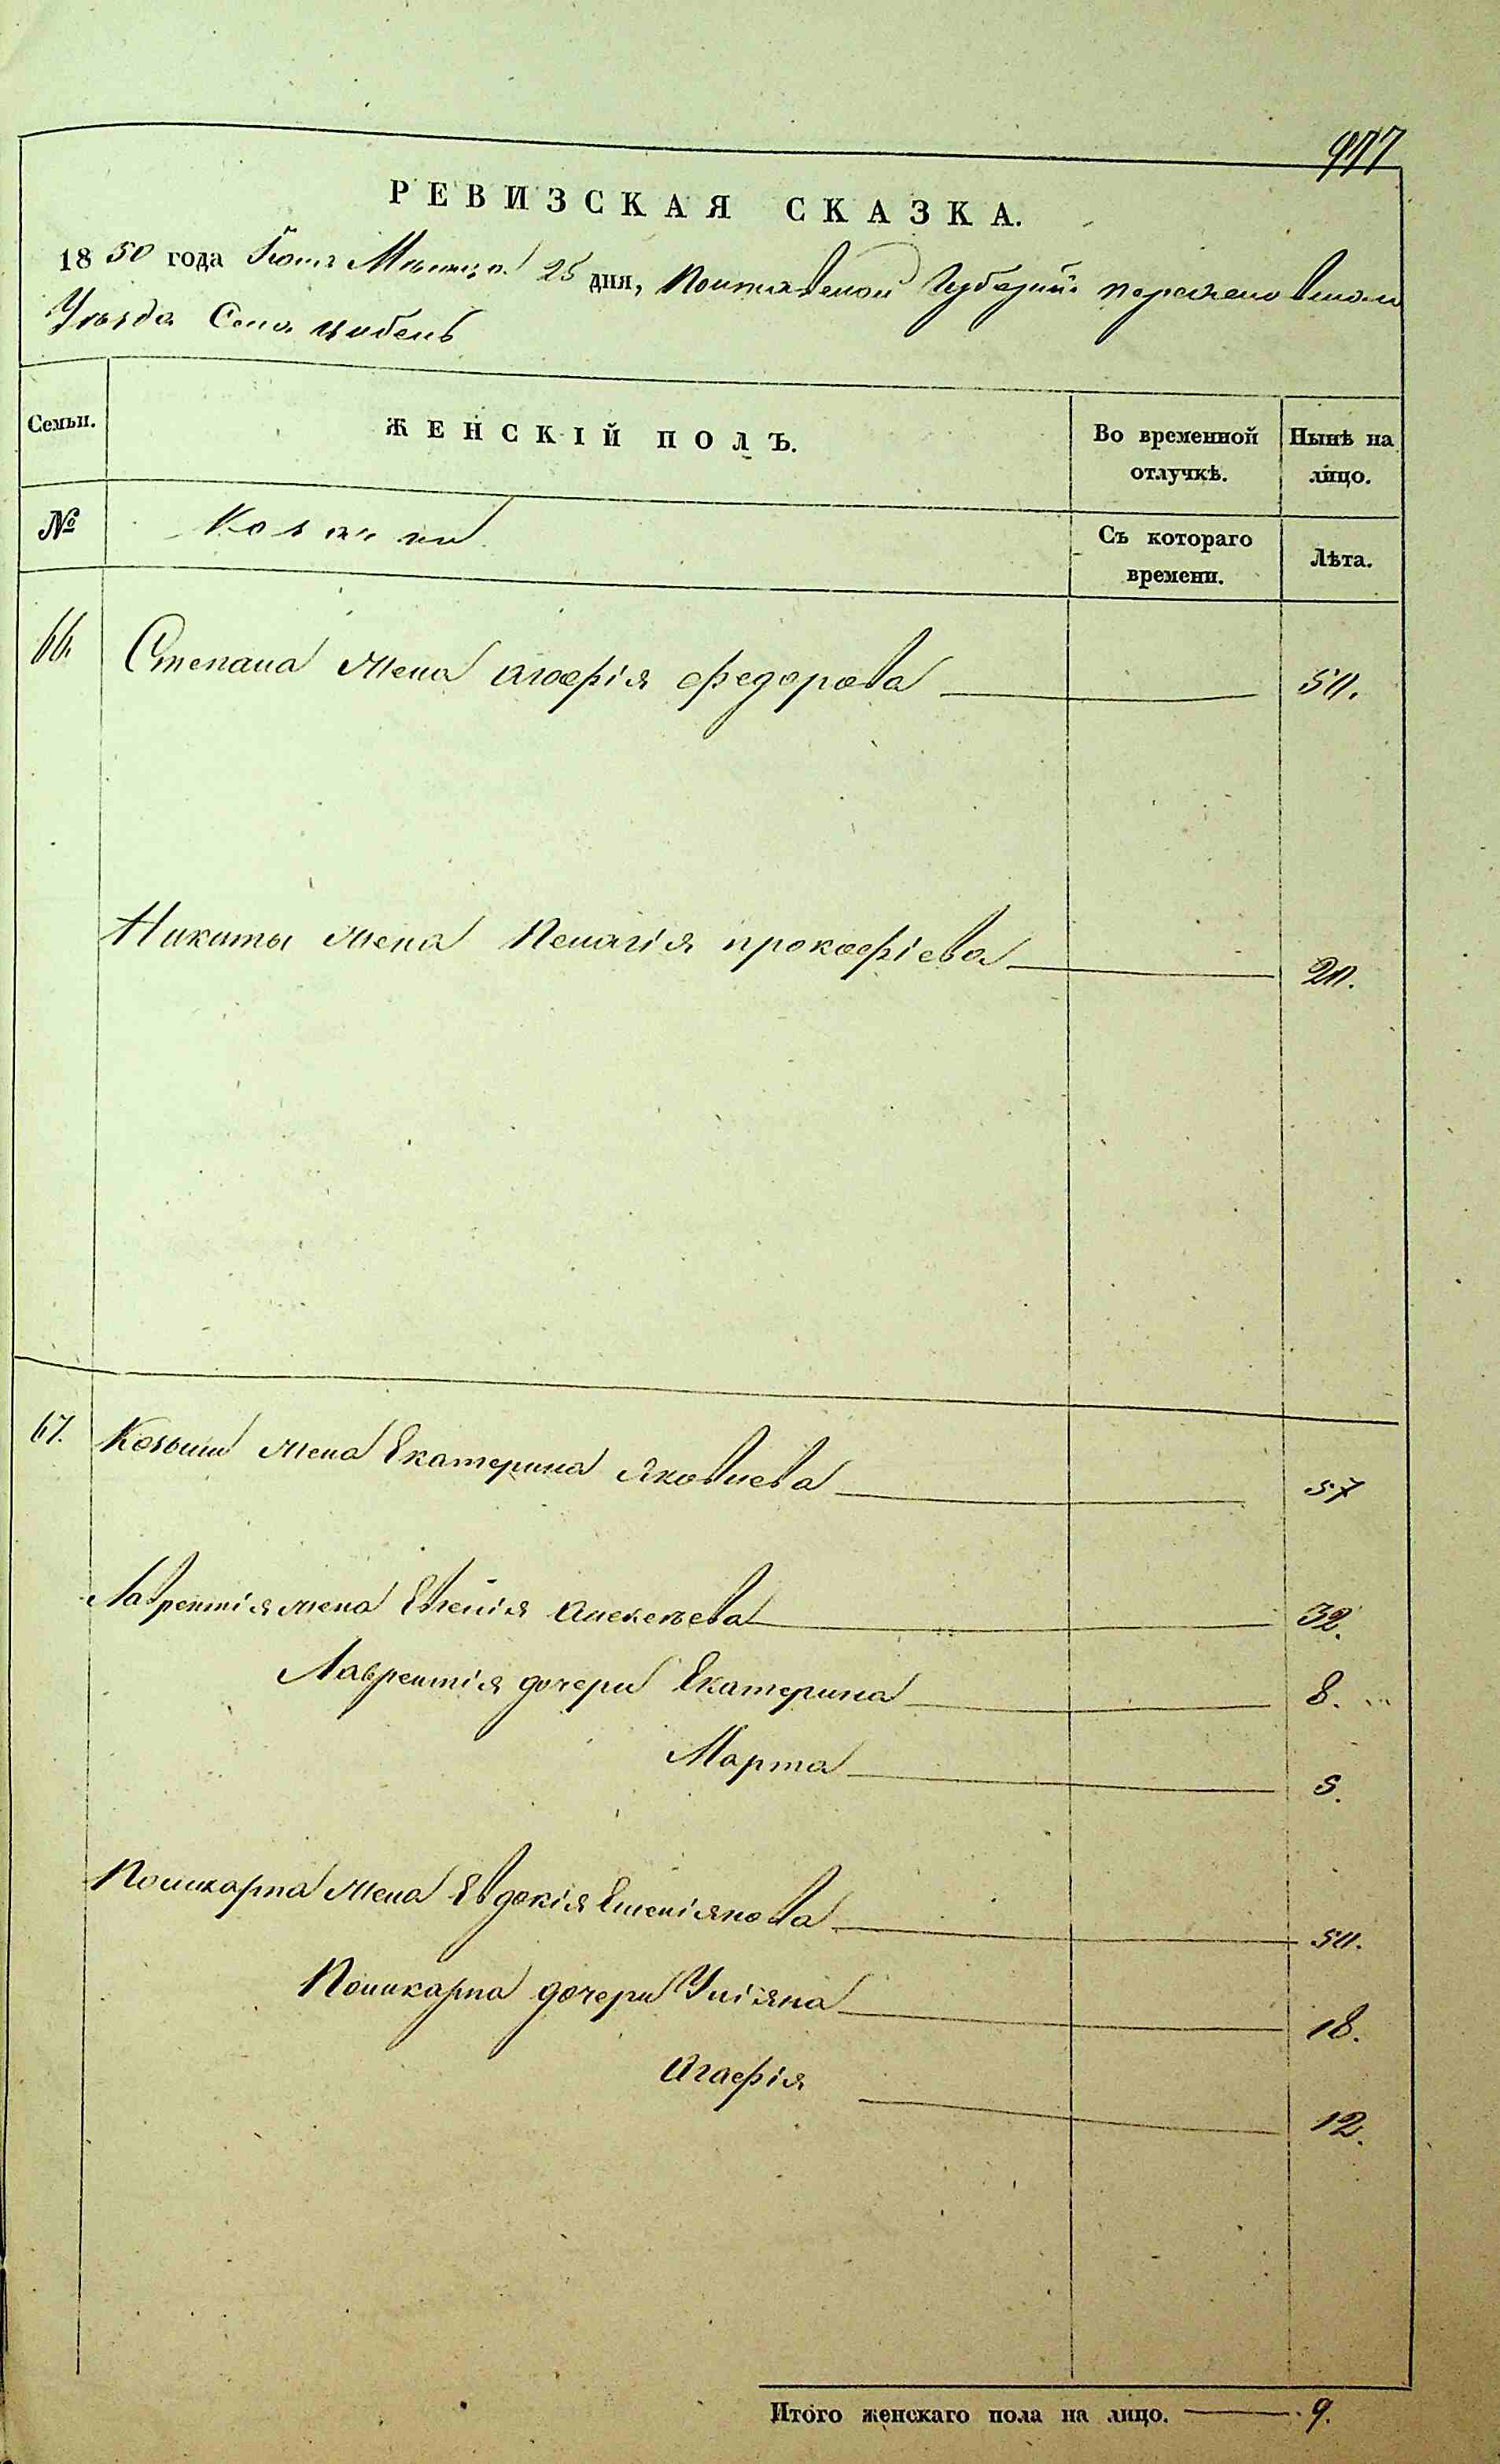 977
РЕВИЗСКАЯ СКАЗКА.
1850 года Юля Мѣсяца 25 дня, Полтавской Губерній Переяславского
Уѣзда Села Цибель
Семьи. ЖЕНСКІЙ ПОЛЪ. Во временной отлучкѣ. Нынѣ на лицо.
№ Козачки Съ котораго времени. Лѣта.
66. Степана жена Агафія Федорова 50.
Никиты жена Пелагія Прокофіева 20.
67. Козьми жена Екатерина Яковлева 57
Лаврентія жена Евгенія Алексѣева 32.
Лаврентія дочери Екатерина 8.
Марта 5.
Поликарпа жена Евдокія Емеліянова 50.
Поликарпа дочери Уліяна 18.
Агафія 12.
Итого женскаго пола на лицо. 9.